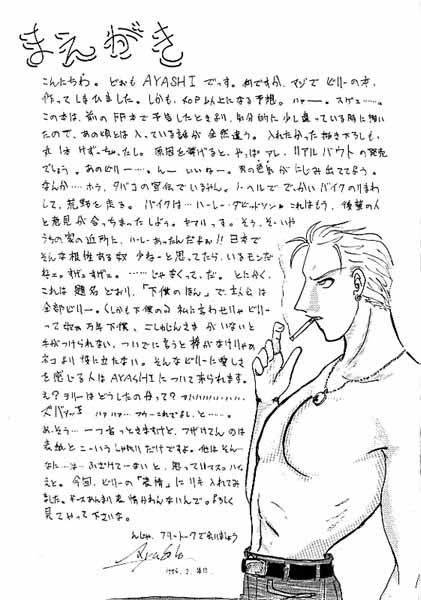 まえがき
こんにちわ。どおも AYASHI でっす。何ですか、マジで ビリーの本、
作って しまひました。しかも、40P 以上になる予想。ハァー。スゲェ……。
この本は、前の FF本で予告したときより、気分的に 少し違っている時に描い
たので、あの頃とは 入っている話が 全然違う。入れたかった描き下ろしも、
けずっちゃったし。原因を挙げると、やっぱ アレ、リアルバウトの発売
でしょう。あのビリー…。んーいいねー。男の色気が にじみ出ててよう。
なんか……ホラ、タバコの宣伝でいるみん。ノーヘルででっかいバイクのりまわ
して、荒野を走る。バイクは…ハーレー・ダビットソン。これはもう、後輩の人
と意見が合っちまったしよう。ヤマハっす。そう、そーいや
うちの家の近所に、ハーレーあったんだよね!!日本で
そんな根性ある奴 少ねーと思ってたら、いるモンだ
ねェ。すげェすげェ。……じゃなくって、だ。とにかく、
これは 題名どおり、「下僕のほん」で、主人公は
全部ビリー。(しかも下僕のみ)私に言わせりゃ ビリー
って奴ぁ 万年下僕、ごしゅじんさま がいないと
手がつけられない、ついでに言うと 棒がなけりゃ
ネコより 役に立たない。そんなビリーに愛しさ
を感じる人は AYASHI について来られます。
え?テリーはどうしたのかって?フハハハハハハ…
ズバァッ ハァハァ… フゥーこれでよし、と……。
あ、そう… 一つ言っときますけど、フザけてんのは
表紙と こーいう しゃべりだけですよ。他は そんー
なに…は…ふざけてーないと、思っていマス。ハイ。
えと。今回、ビリーの「表情」に リキ入れてみ
ました。ギースあんまり 表情かわんないんで。よろしく
見てやって下さいな。
んじゃ、フリートークで会いましょう
1996. 2.